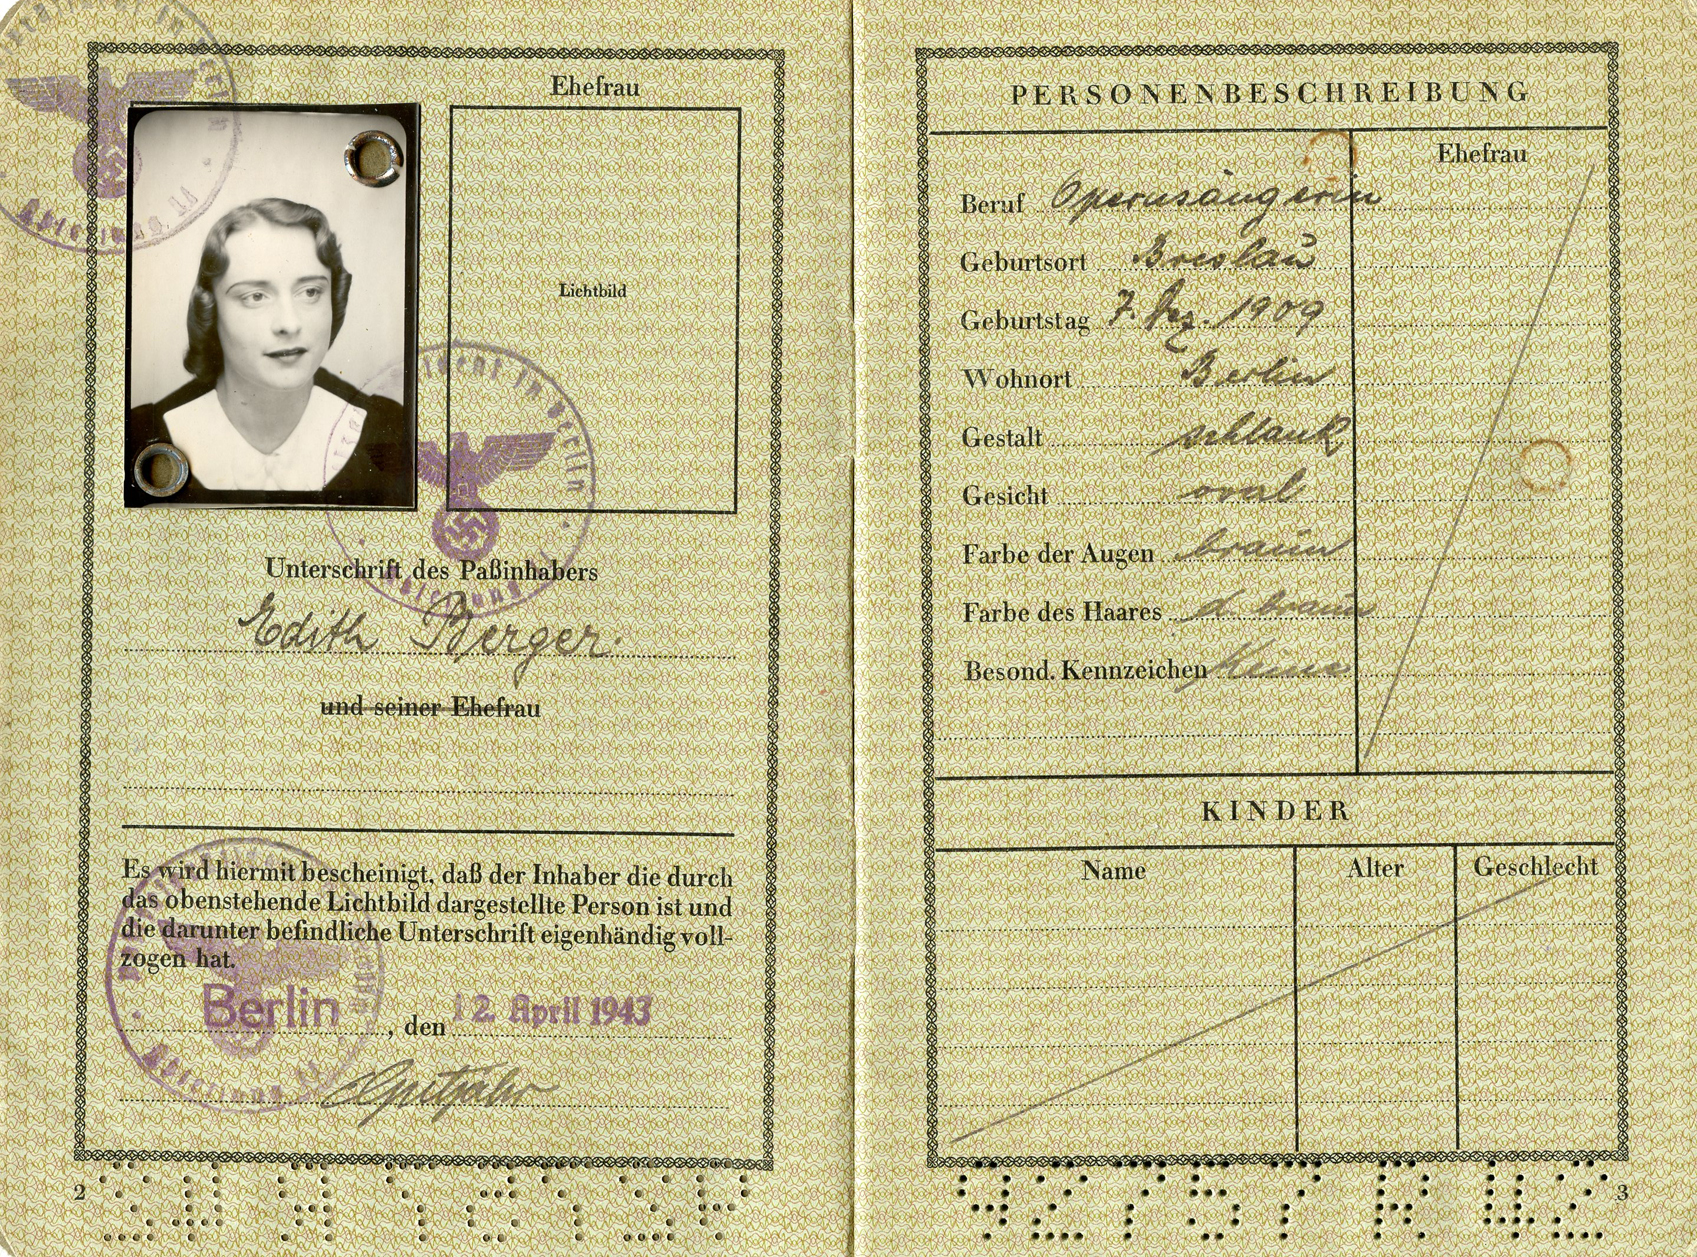 Ehefrau
Lichtbild
Unterschrift des Paßinhabers
Edith Berger.
und seiner Ehefrau
Es wird hiermit bescheinigt, daß der Inhaber die durch
das obenstehende Lichtbild dargestellte Person ist und
die darunter befindliche Unterschrift eigenhändig voll-
zogen hat.
Berlin, den 12. April 1943
2
PERSONENBESCHREIBUNG
Ehefrau
Beruf Opernsängerin
Geburtsort Breslau
Geburtstag 7. Dez. 1909
Wohnort Berlin
Gestalt schlank
Gesicht oval
Farbe der Augen braun
Farbe des Haares d. braun
Besond. Kennzeichen Keine
KINDER
Name Alter Geschlecht
92757 R 42
3